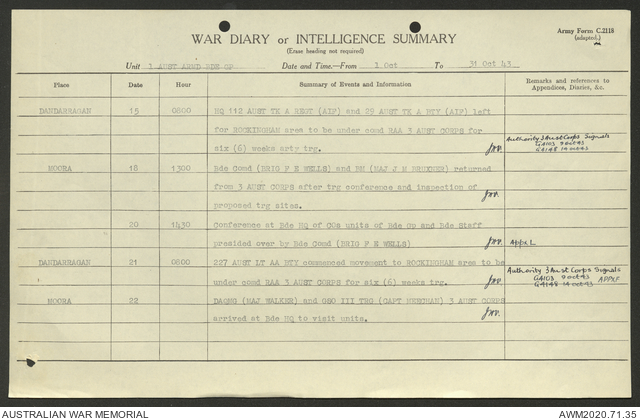 Army Form C.2118
(adapted.)
WAR DIARY or INTELLIGENCE SUMMARY
(Erase heading not required)
Unit 1 AUST ARMD BDE GP Date and Time.—From 1 Oct To 31 Oct 43
Place Date Hour Summary of Events and Information Remarks and references to Appendices, Diaries, &c.
DANDARRAGAN 15 0800 HQ 112 AUST TK A REGT (AIF) and 29 AUST TK A BTY (AIF) left
for ROCKINGHAM area to be under comd RAA 3 AUST CORPS for
six (6) weeks arty trg. Authority 3 Aust Corps Signals
G4103 9 oct 43
G4148 14 oct 43
MOORA 18 1300 Bde Comd (BRIG F E WELLS) and BM (MAJ J M BRUXNER) returned
from 3 AUST CORPS after trg conference and inspection of
proposed trg sites.
20 1430 Conference at Bde HQ of COs units of Bde Gp and Bde Staff
presided over by Bde Comd (BRIG F E WELLS) Appx L
DANDARRAGAN 21 0800 227 AUST LT AA BTY commenced movement to ROCKINGHAM area to be
under comd RAA 3 AUST CORPS for six (6) weeks trg. Authority 3 Aust Corps Signals
G4103 9 oct 43
G4148 14 oct 43 APPX F
MOORA 22 DAQMG (MAJ WALKER) and GSO III TRG (CAPT MEEHAN) 3 AUST CORPS
arrived at Bde HQ to visit units.
AUSTRALIAN WAR MEMORIAL AWM2020.71.35